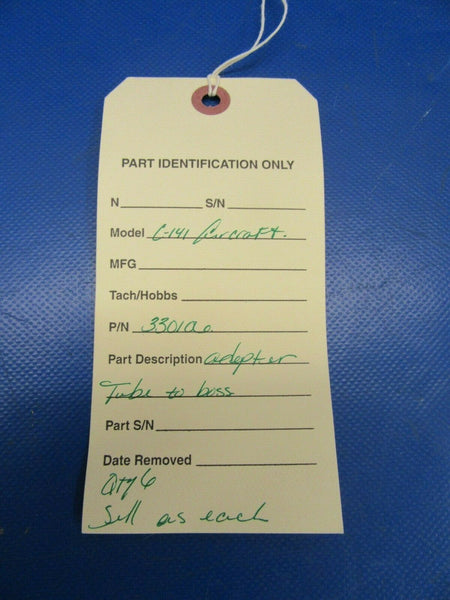 PART IDENTIFICATION ONLY
N S/N
Model C-141 Aircraft.
MFG
Tach/Hobbs
P/N
Part Description adapter
Tube to boss
Part S/N
Date Removed
Qty 6
Sell as each